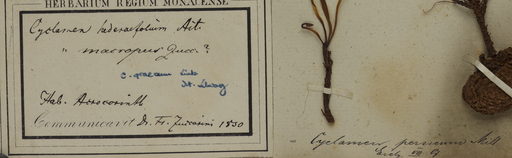 HERBARIUM REGIUM MONACENSE
Cyclamen hederaefolium Ait.
" macropus Zucc.?
C. graecum Link
Hab. Acrocorinth
Communicavit Dr. Fr. Zuccarini 1830
Cyclamen persicum Mill